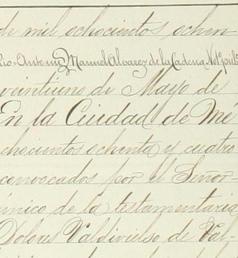 de mil ochocientos ochen
Antonio, Manuel Alvarez de la Cadena, Not° púb
veintiuno de Mayo de
En la Ciudad de Mé
chocientos ochenta y cuatro
convocados por el Señor
único de la testamentaria
Dolores Valdivielso de Val